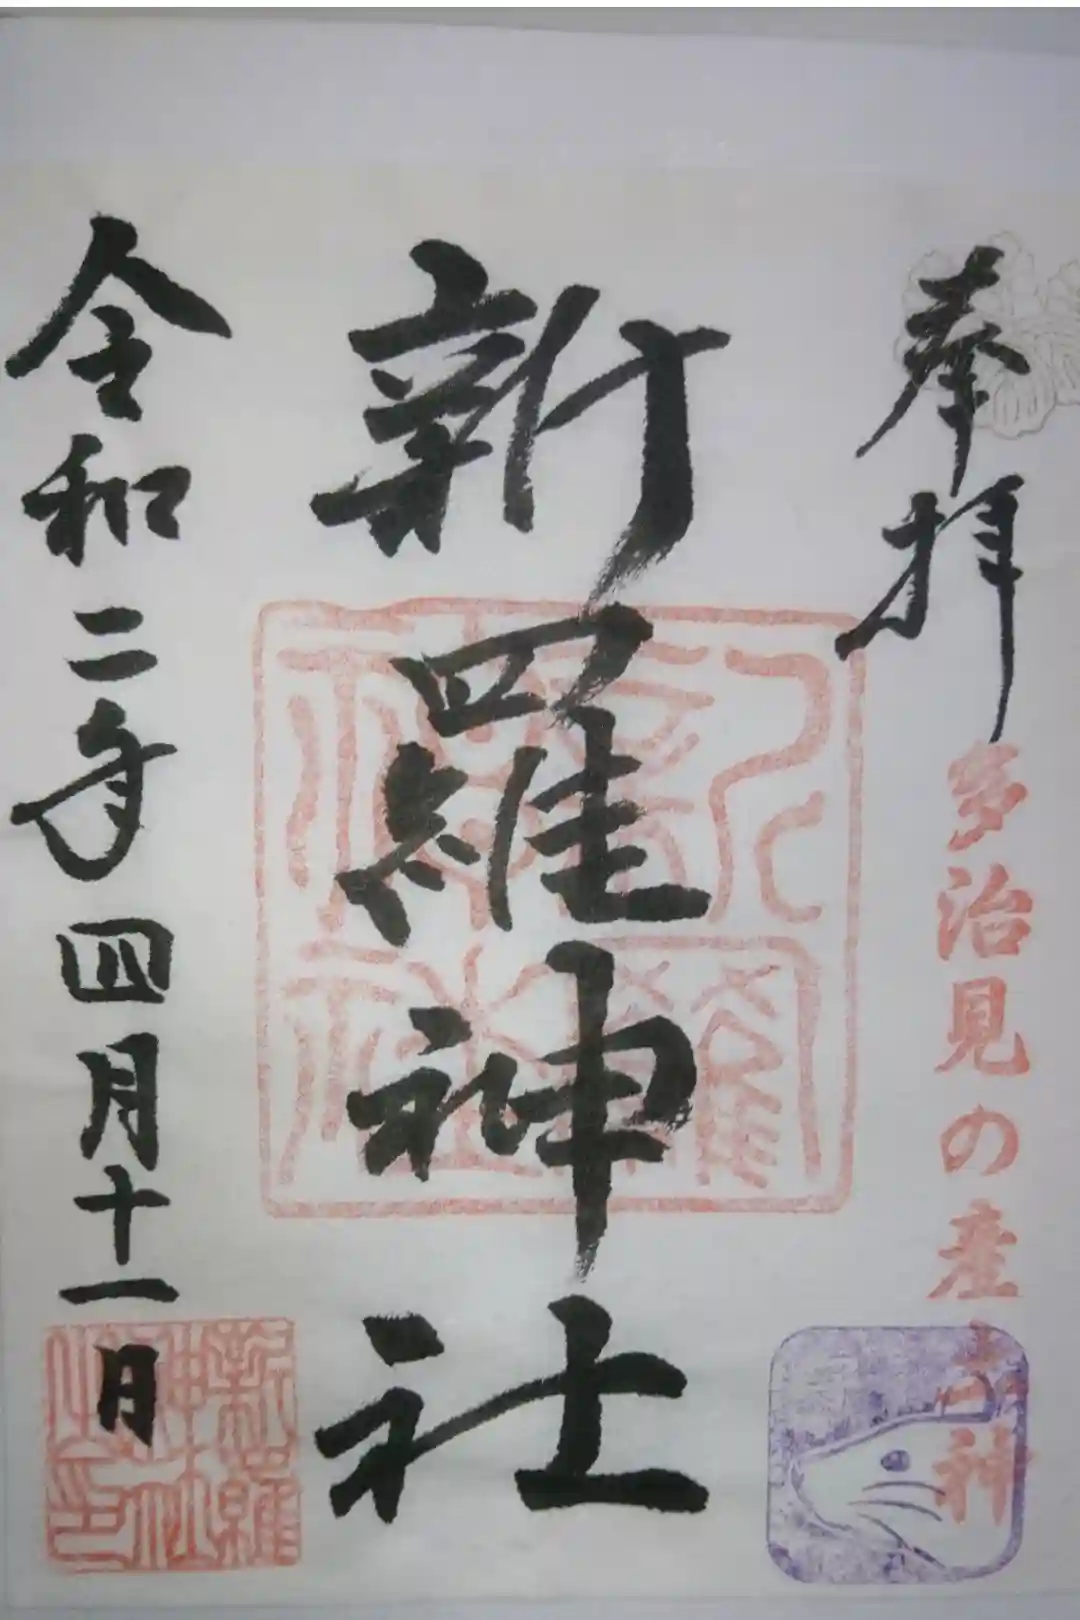 奉拝
多治見の産土神
新羅神社
令和二年四月十一日
新羅神社之印